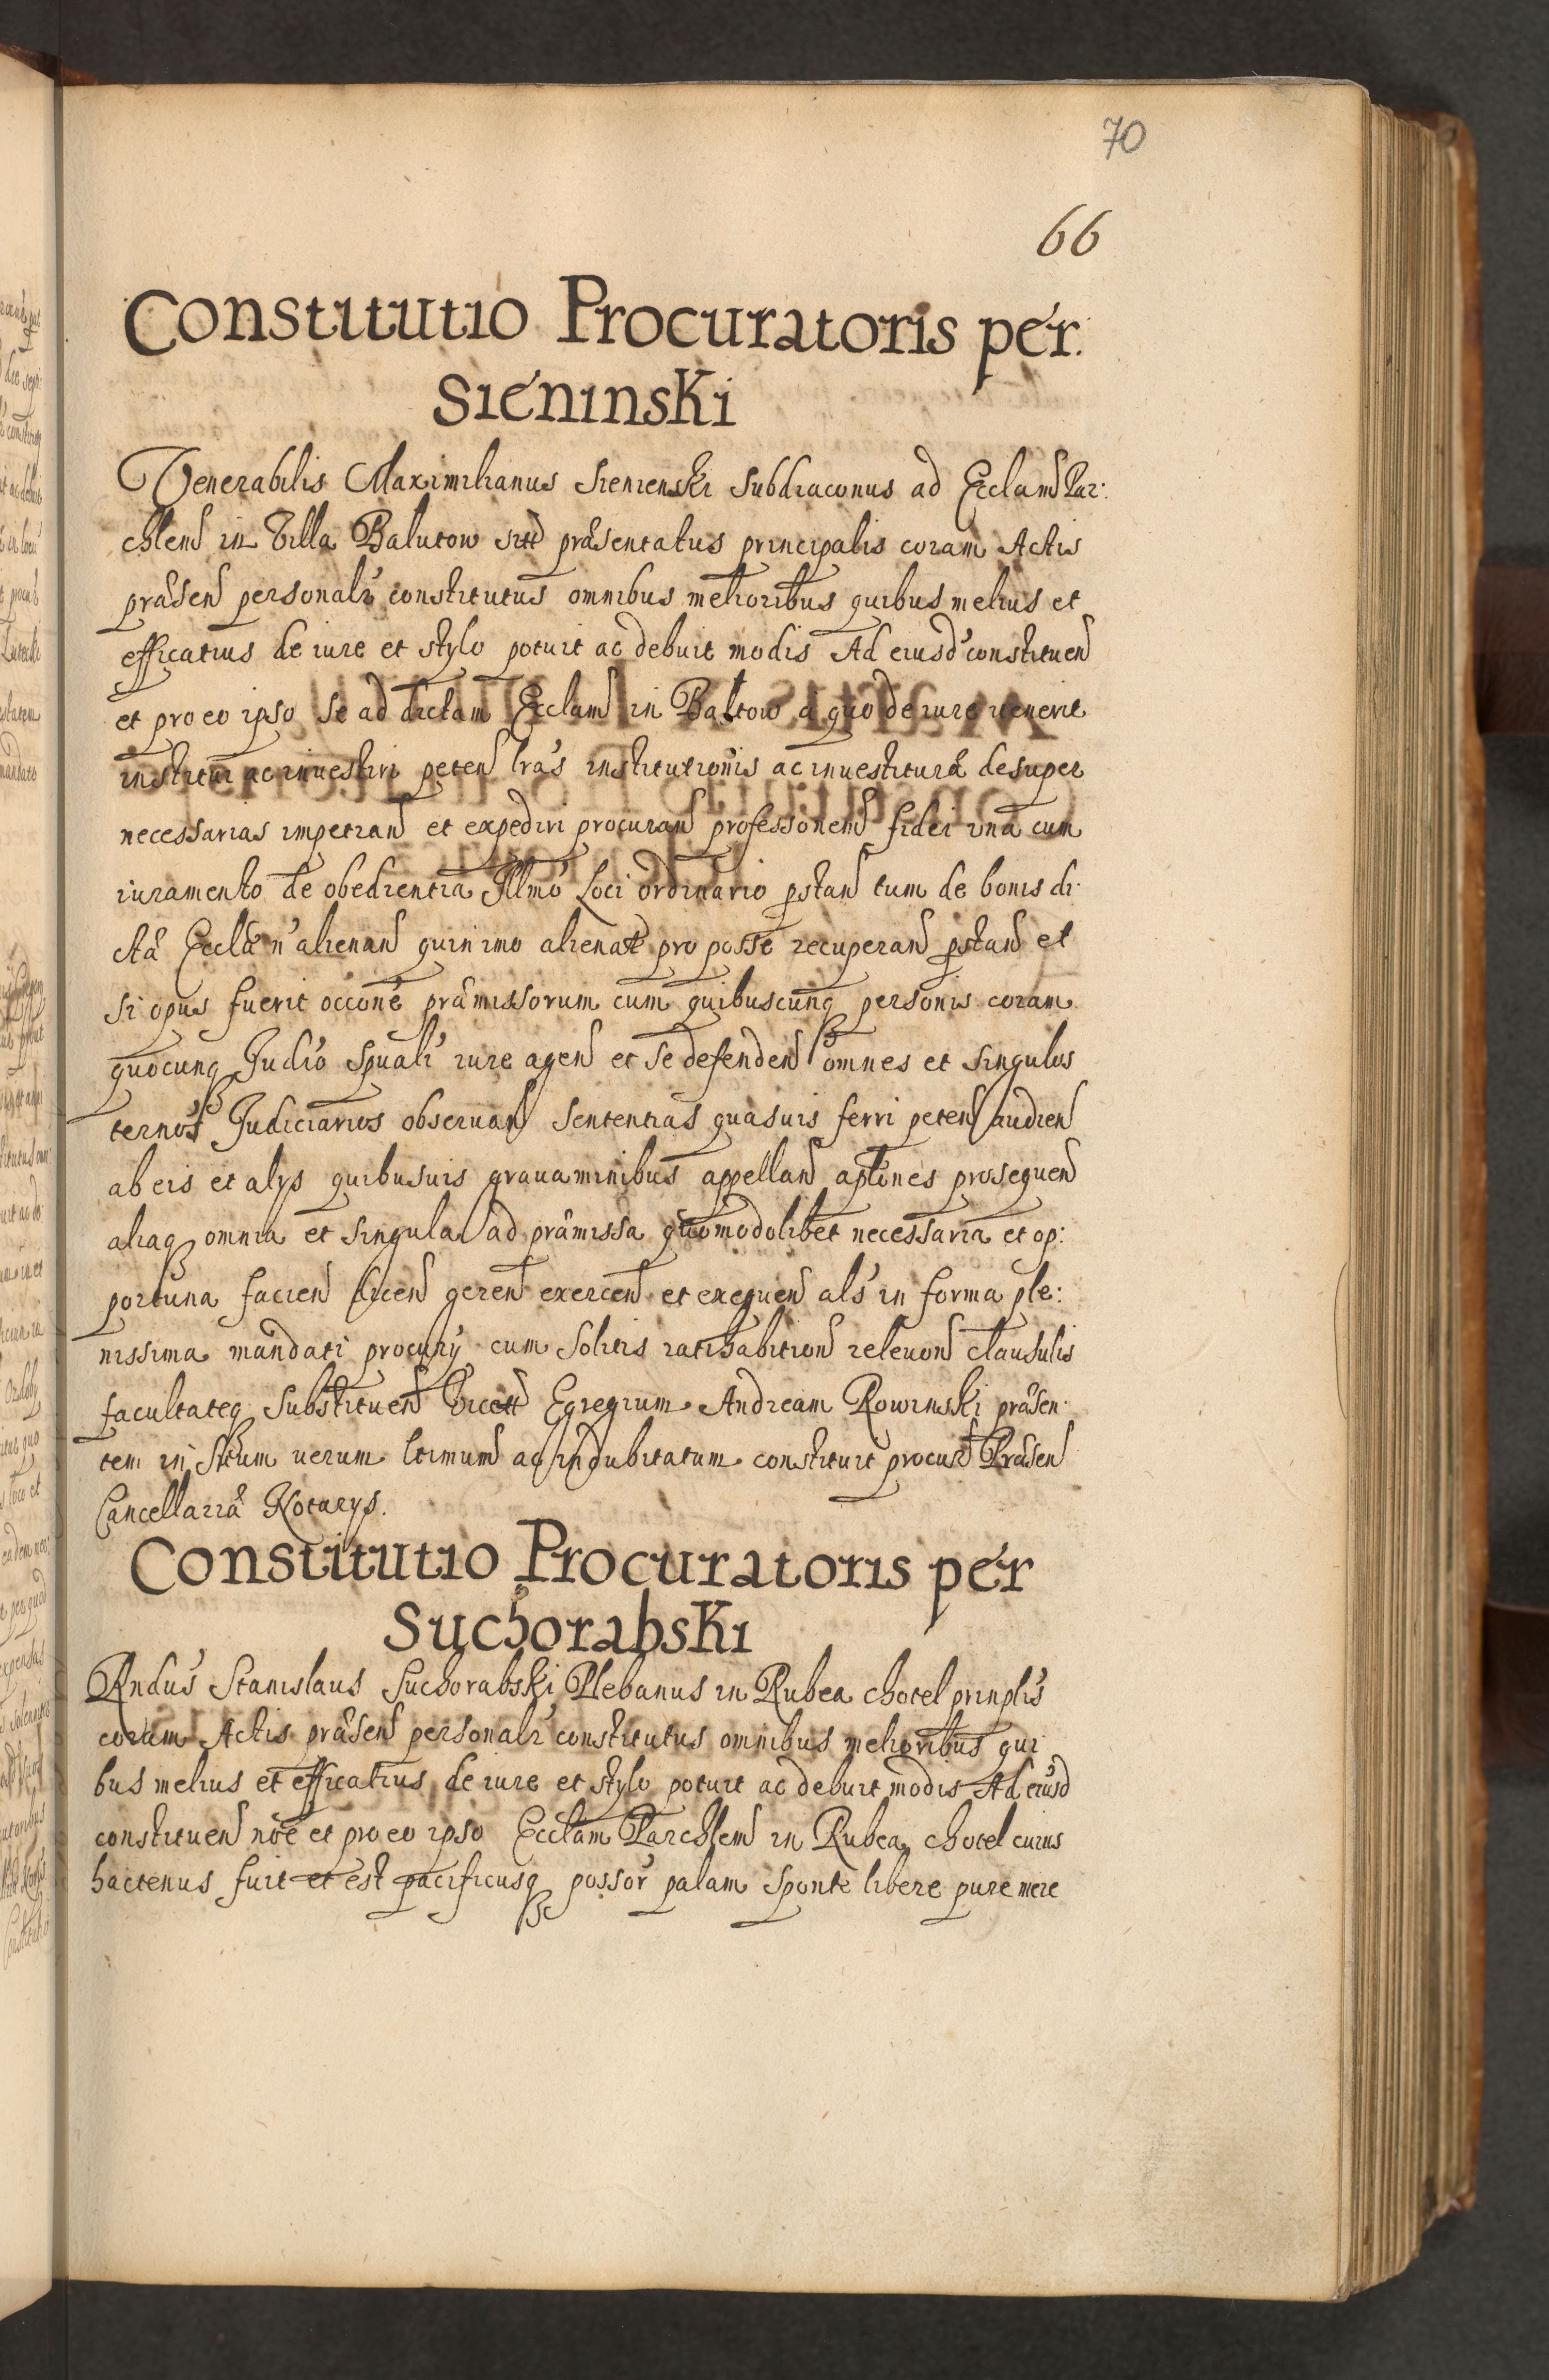 70
66
Constitutio Procuratoris per.
Sieninski
Venerabilis Maximilianus Sienienski Subdiaconus ad Ecclam Par:
chlem in Villa Balutow sitt præsentatus principalis coram Actis
præsen personalr constitutus omnibus melioribus quibus melius et
efficatius de iure et stylo potuit ac debuit modis Ad eiusd constituen
et pro eo ipso se ad dictam Ecclam in Baltow a quo de iure uenerit
institui ac inuestiri peten lras institutionis ac inuestituræ desuper
necessarias impetran et expediri procuran professonem fidei una cum
iuramento de obedientia Illmo Loci ordinario pstan tum de bonis di:
ctæ Ecclæ n alienan quinimo alienatt pro posse recuperan pstan et
si opus fuerit occone præmissorum cum quibuscunq personis coram
quocunq Judio Spuali iure agen et se defenden omnes et singulos
ternos Judiciarios obseruan Sententias quasuis ferri peten audien
ab eis et alys quibusuis grauaminibus appellan aplones prosequen
aliaq omnia et singula ad præmissa quomodolibet necessaria et op:
portuna facien dicen geren exercen et exequen als in forma ple:
nissima mandati procury cum solitis ratihabition releuon clausulis
facultateq substituen vicett Egregium Andream Rowinski præsen:
tem in suum uerum ltimum ac indubitatum constituit procur Præsen
Cancellariæ Notarys.
Constitutio Procuratoris per
Suchorabski
Rndus Stanislaus Suchorabski Plebanus in Rubea chotel prinplis
coram Actis præsen personalr constitutus omnibus melioribus qui
bus melius et efficatius de iure et stylo potuit ac debuit modis Ad eiusd
constituen noe et pro eo ipso Ecclam Parchlem in Rubea chotel cuius
hactenus fuit et est pacificusq possor palam sponte libere pure mere